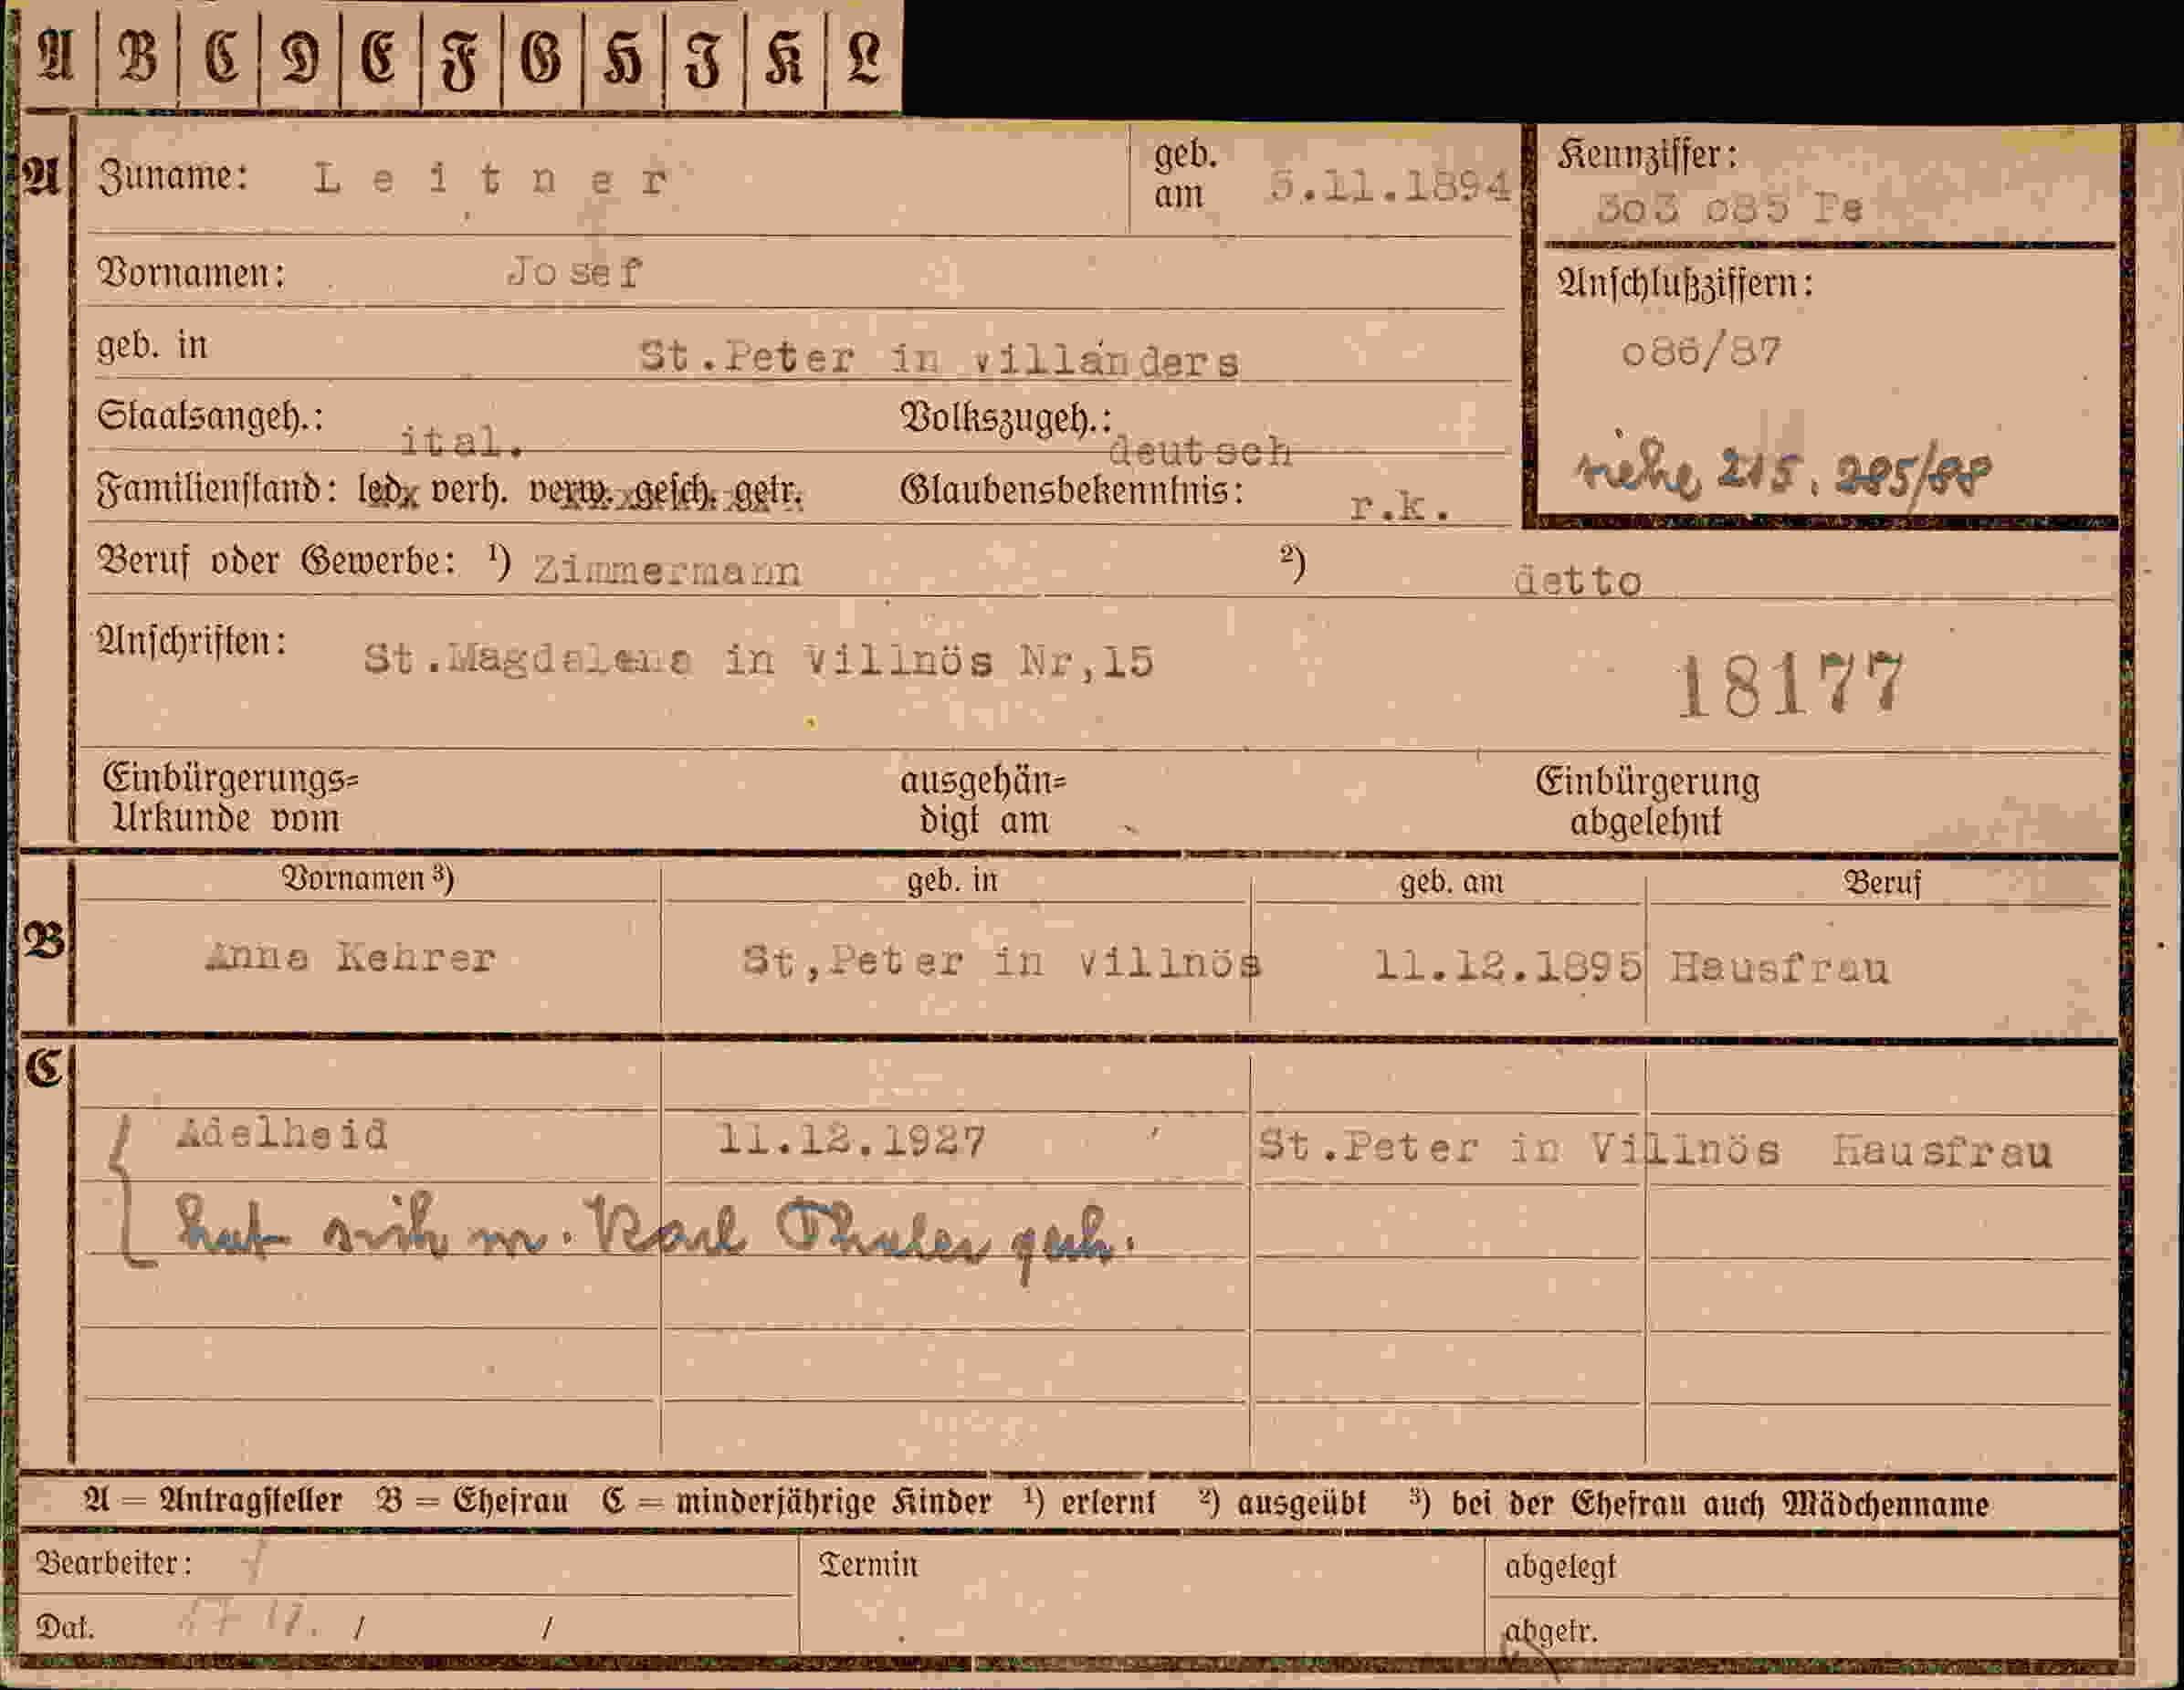 A B C D E F G H I K L
A Zuname: Leitner geb. am 5.11.1894
Kennziffer:
303 085 Pe
Vornamen: Josef
Anschlußziffern:
086/87
siehe 215.285/88
geb. in St.Peter in villanders
Staatsangeh.: ital. Volkszugeh.: deutsch
Familienstand: led. verh. verw. gesch. getr. Glaubensbekenntnis: r.k.
Beruf oder Gewerbe: ¹) Zimmermann ²) detto
Anschriften: St.Magdalena in Villnös Nr,15
18177
Einbürgerungs= ausgehän= Einbürgerung
Urkunde vom digt am abgelehnt
Vornamen ³) geb. in geb. am Beruf
B Anna Kehrer St,Peter in villnös 11.12.1895 Hausfrau
C
Adelheid 11.12.1927 St.Peter in Villnös Hausfrau
hat sich m. Karl Thaler
A = Antragsteller B = Ehefrau C = minderjährige Kinder ¹) erlernt ²) ausgeübt ³) bei der Ehefrau auch Mädchenname
Bearbeiter: Termin abgelegt
Dat. / / abgetr.